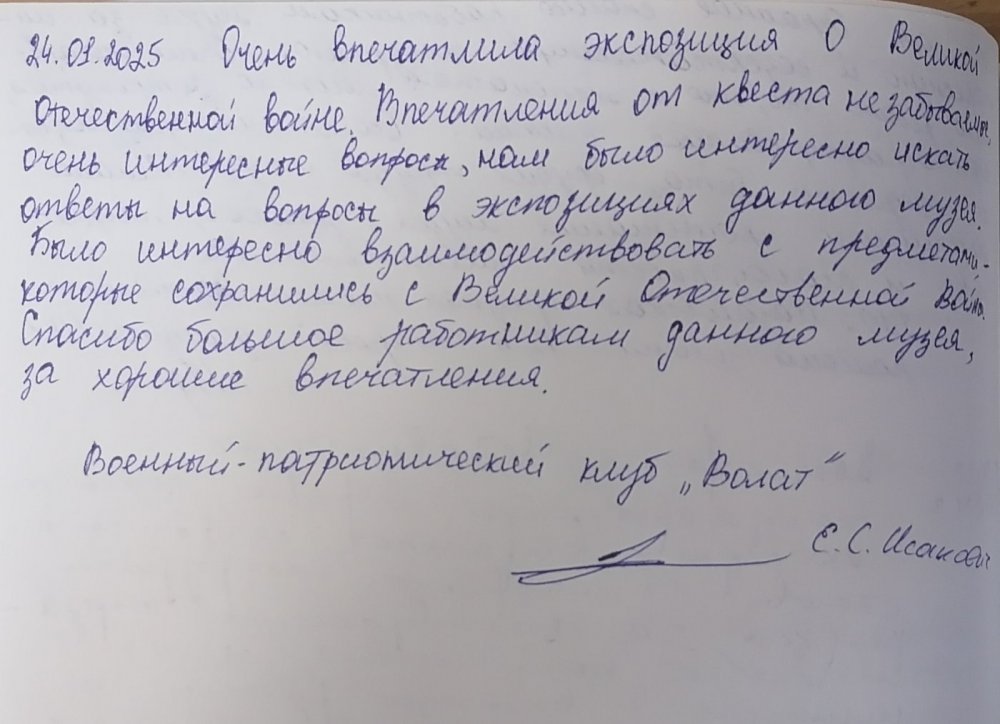 24.01.2025 Очень впечатлила экспозиция О Великой
Отечественной войне. Впечатления от квеста незабываемые,
очень интересные вопросы, нам было интересно искать
ответы на вопросы в экспозициях данного музея.
Было интересно взаимодействовать с предметами,
которые сохранились с Великой Отечественной Войны.
Спасибо большое работникам данного музея,
за хорошие впечатления.
Военный-патриотический клуб „Волат"
Е. С. Исакович